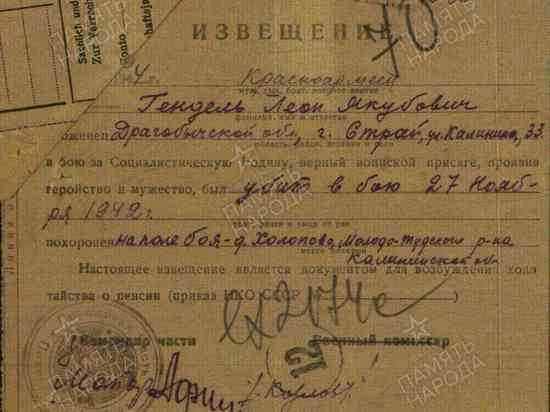 Sächlich und
Zur Verrechn
Konto
ИЗВЕЩЕНИЕ
70
Красноармеец
Гендель Леон Якубович
фамилия, имя и отчество
Драгобычской обл., г. Стрый, ул. Калинина, 33.
в бою за Социалистическую Родину, верный воинской присяге, проявив
геройство и мужество, был убит в бою 27 Нояб-
ря 1942 г.
похоронен на поле боя - д. Холопово, Молодо-Тудского р-на
Калининской об-
Настоящее извещение является документом для возбуждения хода
тайства о пенсии (приказ НКО СССР №)
вх2074с
Командир части
Военный комиссар
12
/Козлов/
ПАМЯТЬ
НАРОДА